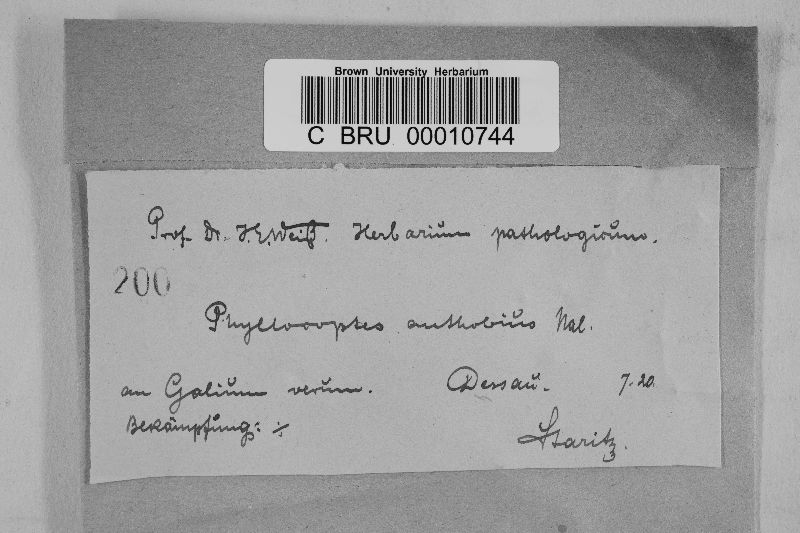 Brown University Herbarium
C BRU 00010744
Prof. Dr. H.E. Weiß. Herbarium pathologicum.
200
Phyllocoptes anthobius Nal.
an Galium verum. Dessau. 7.20
Bekämpfung: ÷
Staritz.